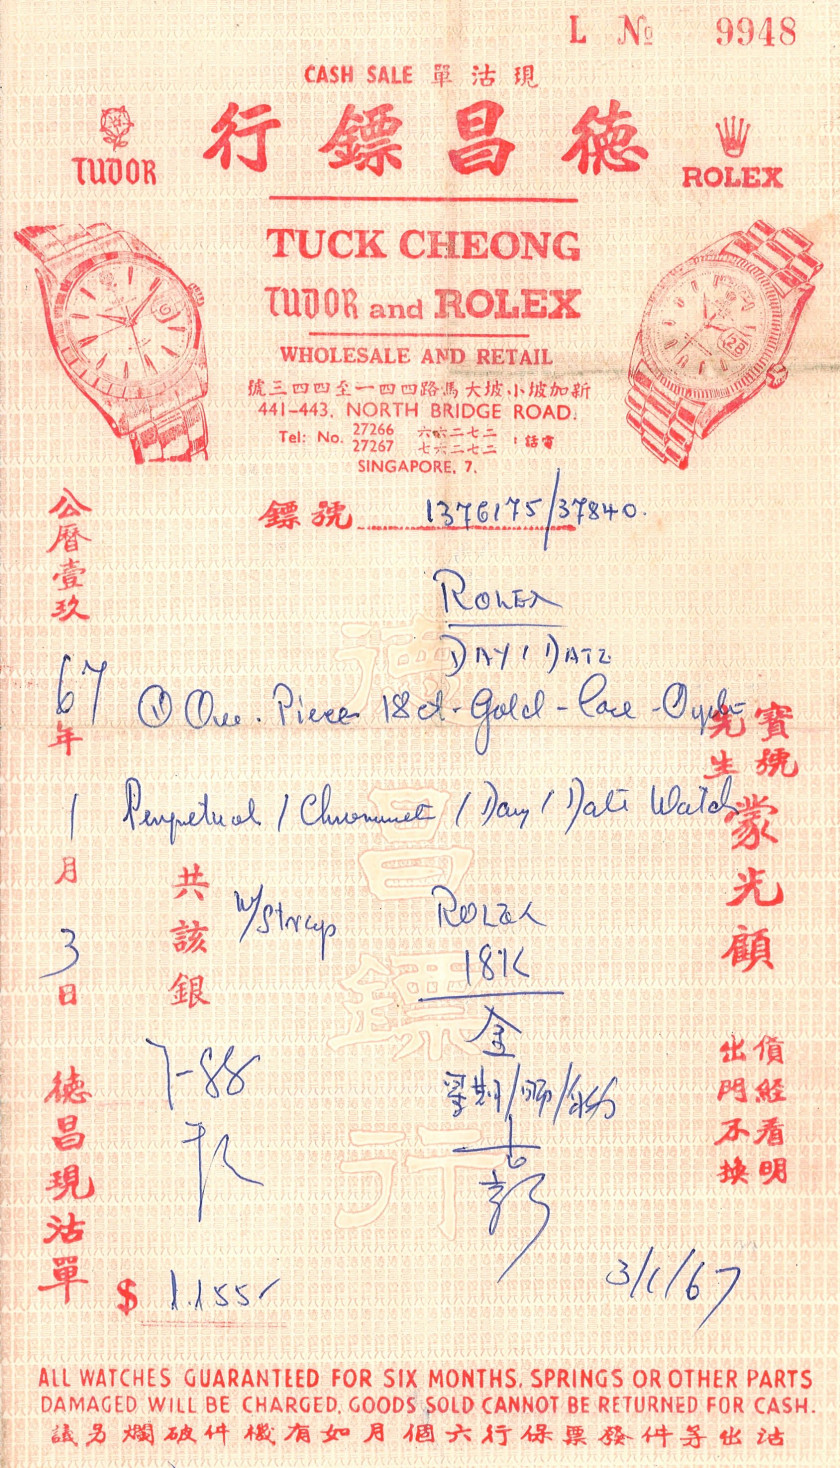 L № 9948
CASH SALE 單沽現
行鏢昌德
TUDOR
ROLEX
TUCK CHEONG
TUDOR and ROLEX
WHOLESALE AND RETAIL
號三四四至一四四路馬大坡小坡加新
441-443, NORTH BRIDGE ROAD.
Tel: No. 27266 六六二七二 :話電
27267 七六二七二
SINGAPORE, 7.
鏢號 1376175/37840.
公曆壹玖67年1月3日
ROLEX
DAY/DATE
① One. Piece 18ct-Gold-Case-Oyster
Perpetual/Chronomet/Day/Date Watch
w/Strap
ROLEX
18K
金
星期/
寶號
先生
蒙光顧
共該銀
7-88
$ 1,155
3/1/67
貨經看明
出門不換
德昌現沽單
德昌鏢行
ALL WATCHES GUARANTEED FOR SIX MONTHS. SPRINGS OR OTHER PARTS
DAMAGED WILL BE CHARGED. GOODS SOLD CANNOT BE RETURNED FOR CASH.
議另爛破件機有如月個六行保票發件等出沽